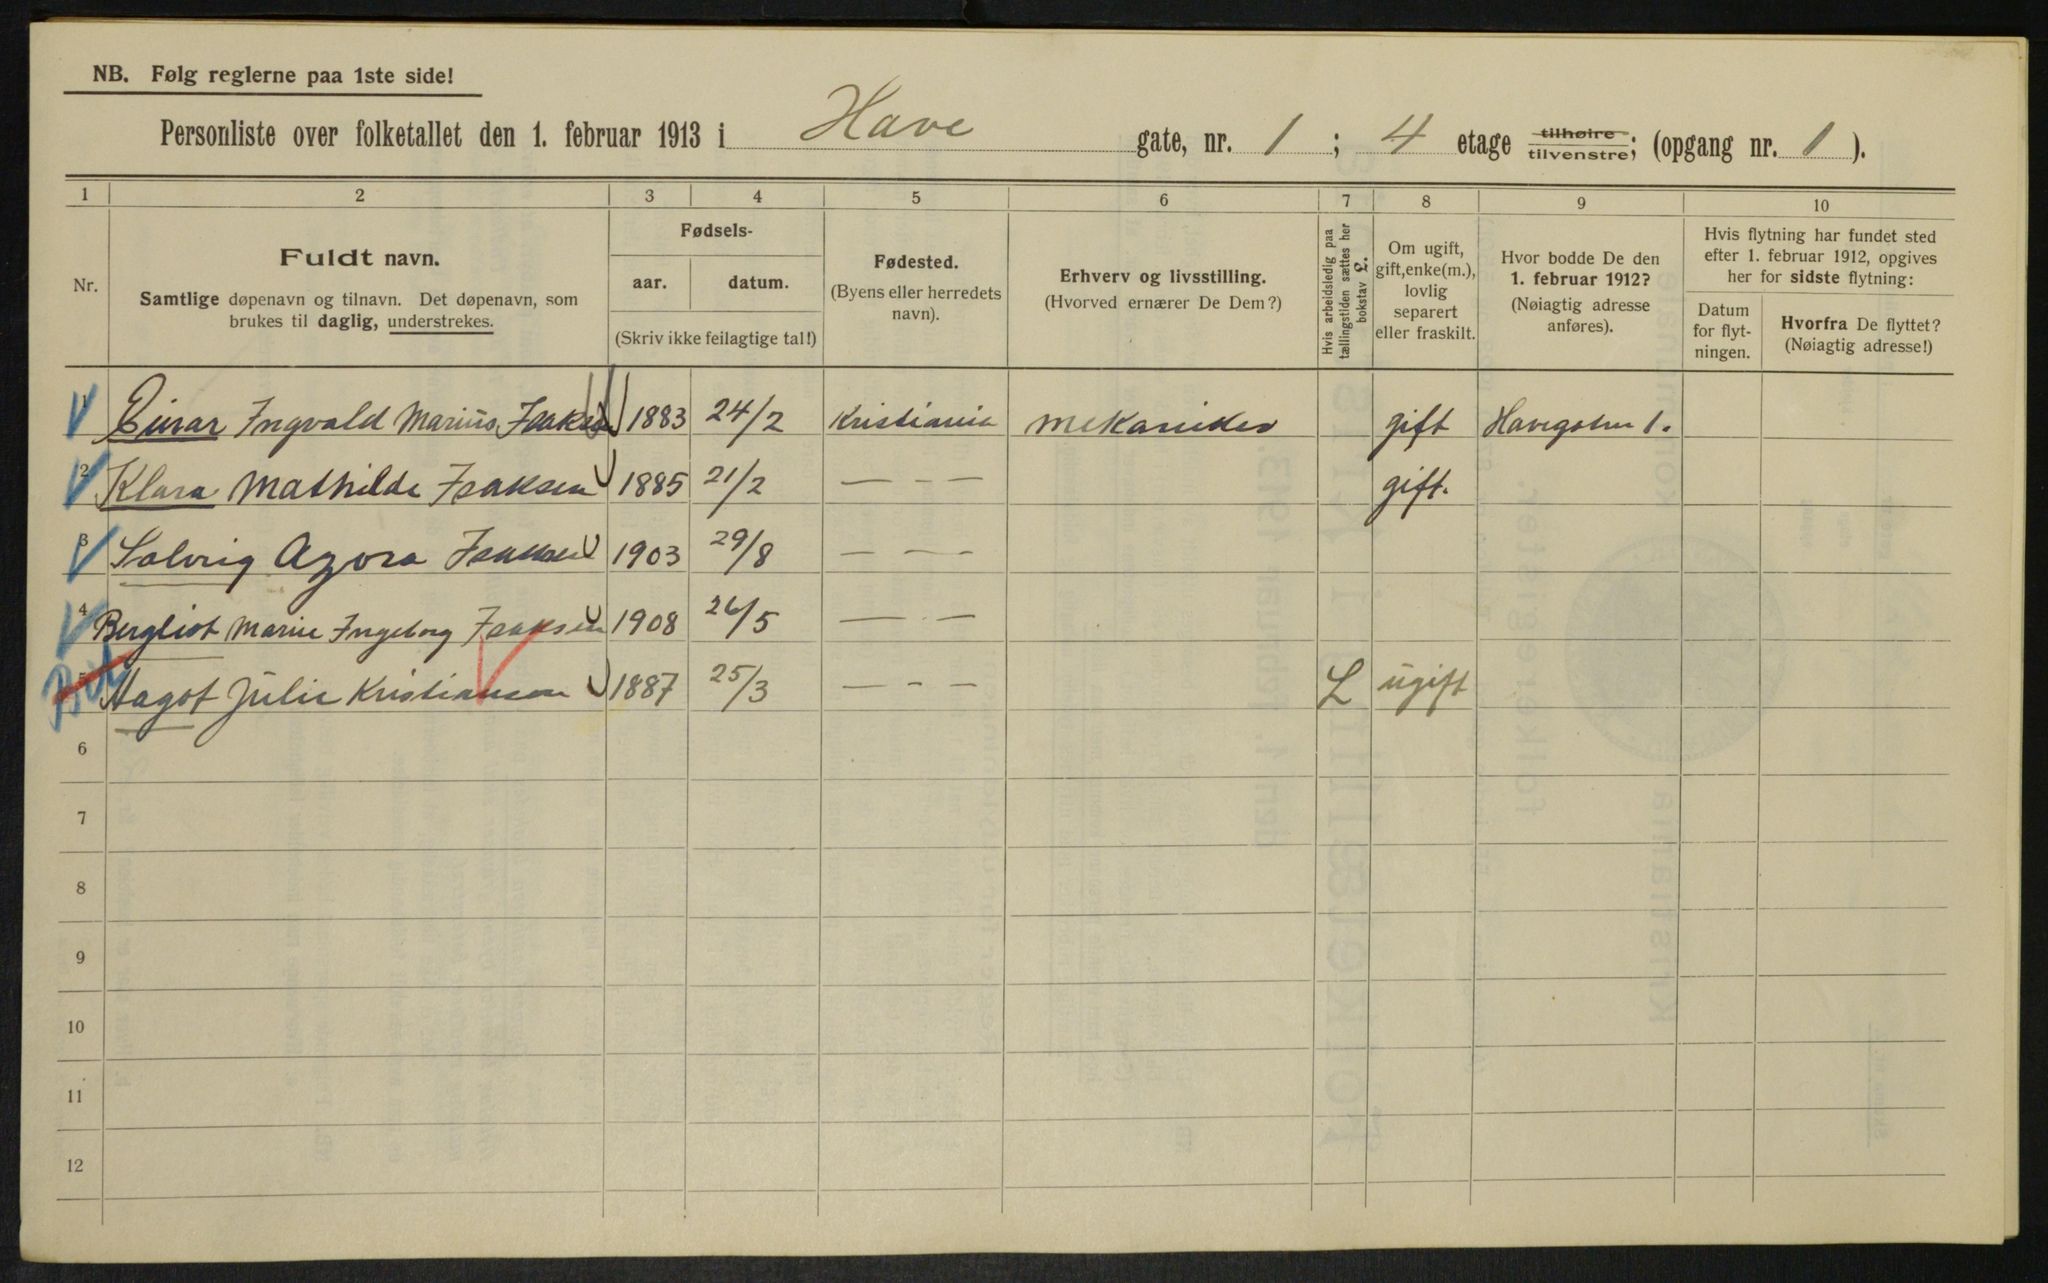 NB. Følg reglerne paa 1ste side!
Personliste over folketallet den 1. februar 1913 i Have gate, nr. 1 ; 4 etage tilhøire tilvenstre; (opgang nr. 1 ).
1 2 3 4 5 6 7 8 9 10
Nr.
Fuldt navn.
Samtlige døpenavn og tilnavn. Det døpenavn, som
brukes til daglig, understrekes.
Fødsels-
aar. datum.
(Skriv ikke feilagtige tal!)
Fødested.
(Byens eller herredets
navn).
Erhverv og livsstilling.
(Hvorved ernærer De Dem?)
Hvis arbeidsledig paa
tællingstiden sættes her
bokstav L.
Om ugift,
gift, enke(m.),
lovlig
separert
eller fraskilt.
Hvor bodde De den
1. februar 1912?
(Nøiagtig adresse
anføres).
Hvis flytning har fundet sted
efter 1. februar 1912, opgives
her for sidste flytning:
Datum
for flyt-
ningen.
Hvorfra De flyttet?
(Nøiagtig adresse!)
1 Einar Ingvald Marius Isaksen 1883 24/2 Kristiania mekaniker gift Havegaten 1.
2 Klara Mathilde Isaksen 1885 21/2 — - — gift.
3 Solveig Agora Isaksen 1903 29/8 — — —
4 Bergliot Marie Ingeborg Isaksen 1908 26/5 — - —
5 Hagot Julie Kristiansen 1887 25/3 — - — L ugift
6
7
8
9
10
11
12